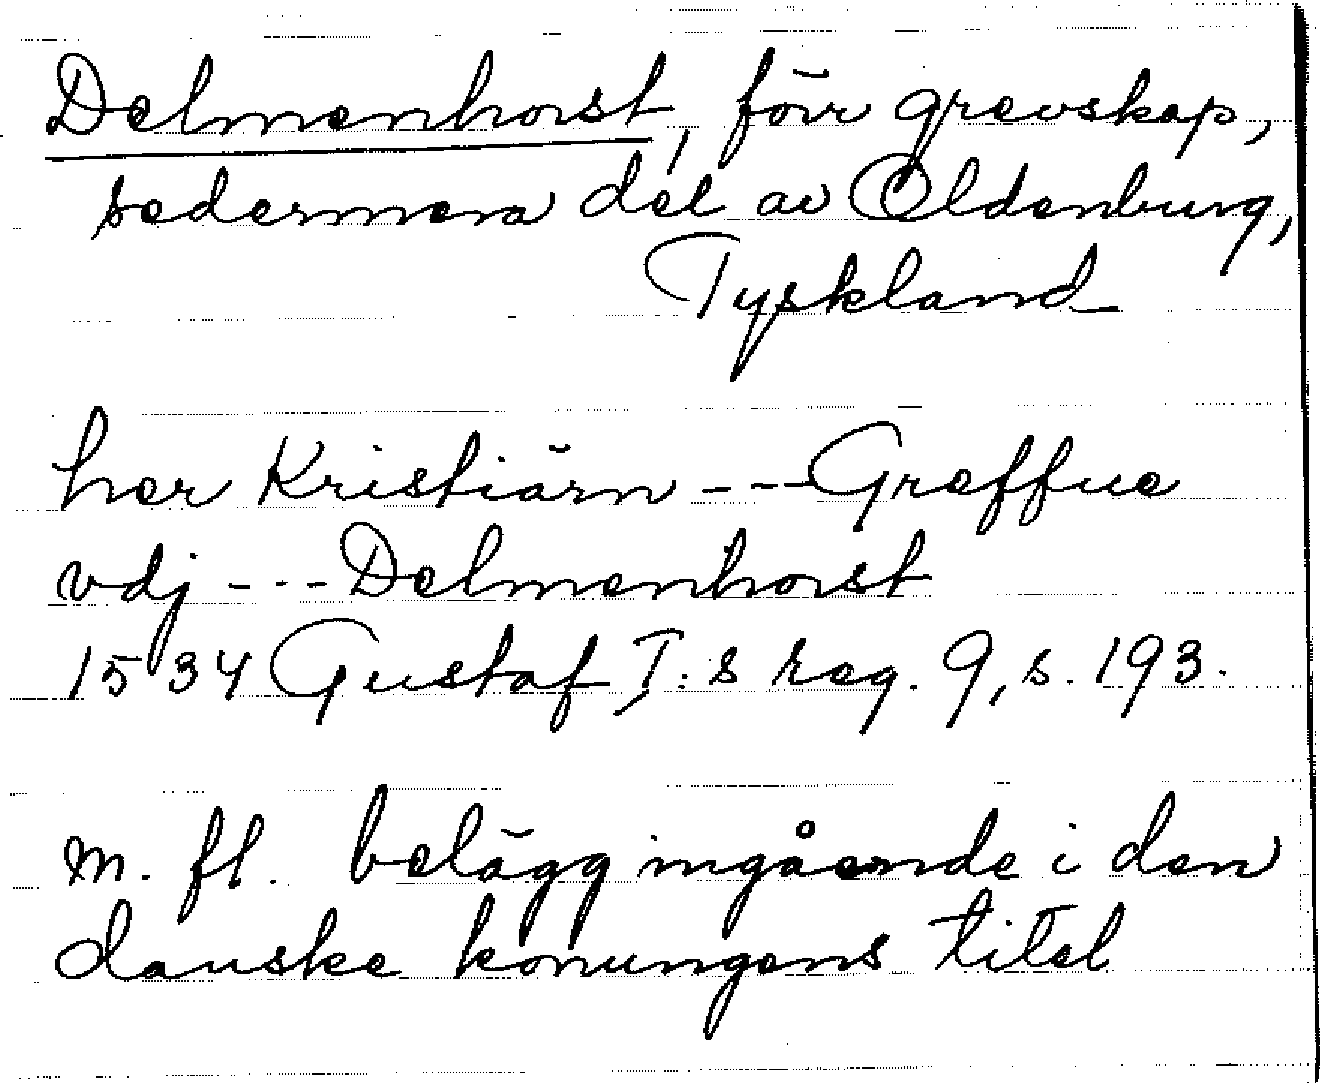 Delmenhorst, förr grevskap,
sedermera del av Oldenburg,
Tyskland
her Kristiärn --- Greffue
vdj --- Delmenhorst
1534 Gustaf I:s reg. 9, s. 193.
m. fl. belägg ingående i den
danske konungens titel